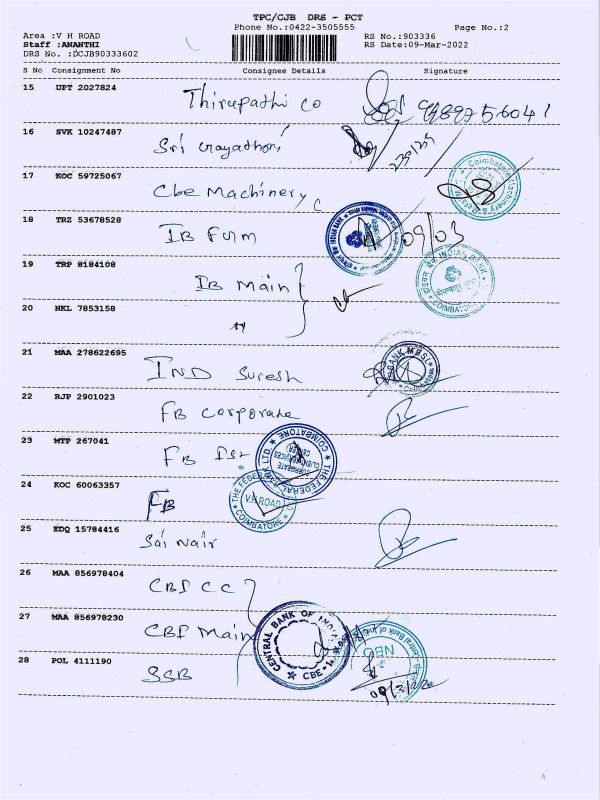 TPC/CJB DRS - PCT
Phone No.:0422-3505555 Page No.:2
Area :V H ROAD RS No.:903336
Staff :ANANTHI RS Date:09-Mar-2022
DRS No. :DCJB90333602
S No Consignment No Consignee Details Signature
15 UPT 2027824 Thirupathi Co 9789756041
16 SVK 10247487 Sri Gayathri
17 KOC 59725067 Cbe Machinery
18 TRZ 53678528 IB Furm 09/03
19 TRP 8184108 IB Main
20 NKL 7853158 "
21 MAA 278622695 IND Suresh
22 RJP 2901023 FB Corporate
23 MTP 267041 FB
24 KOC 60063357 FB
25 EDQ 15784416 Sai Nair
26 MAA 856978404 CBI CC
27 MAA 856978230 CBI Main
28 POL 4111190 SSB
INDIAN BANK
COIMBATORE
THE FEDERAL BANK LTD.
COIMBATORE
CORPORATE
V.H.ROAD
COIMBATORE
CENTRAL BANK OF INDIA
CBE - 1
Central Bank of India
NBO